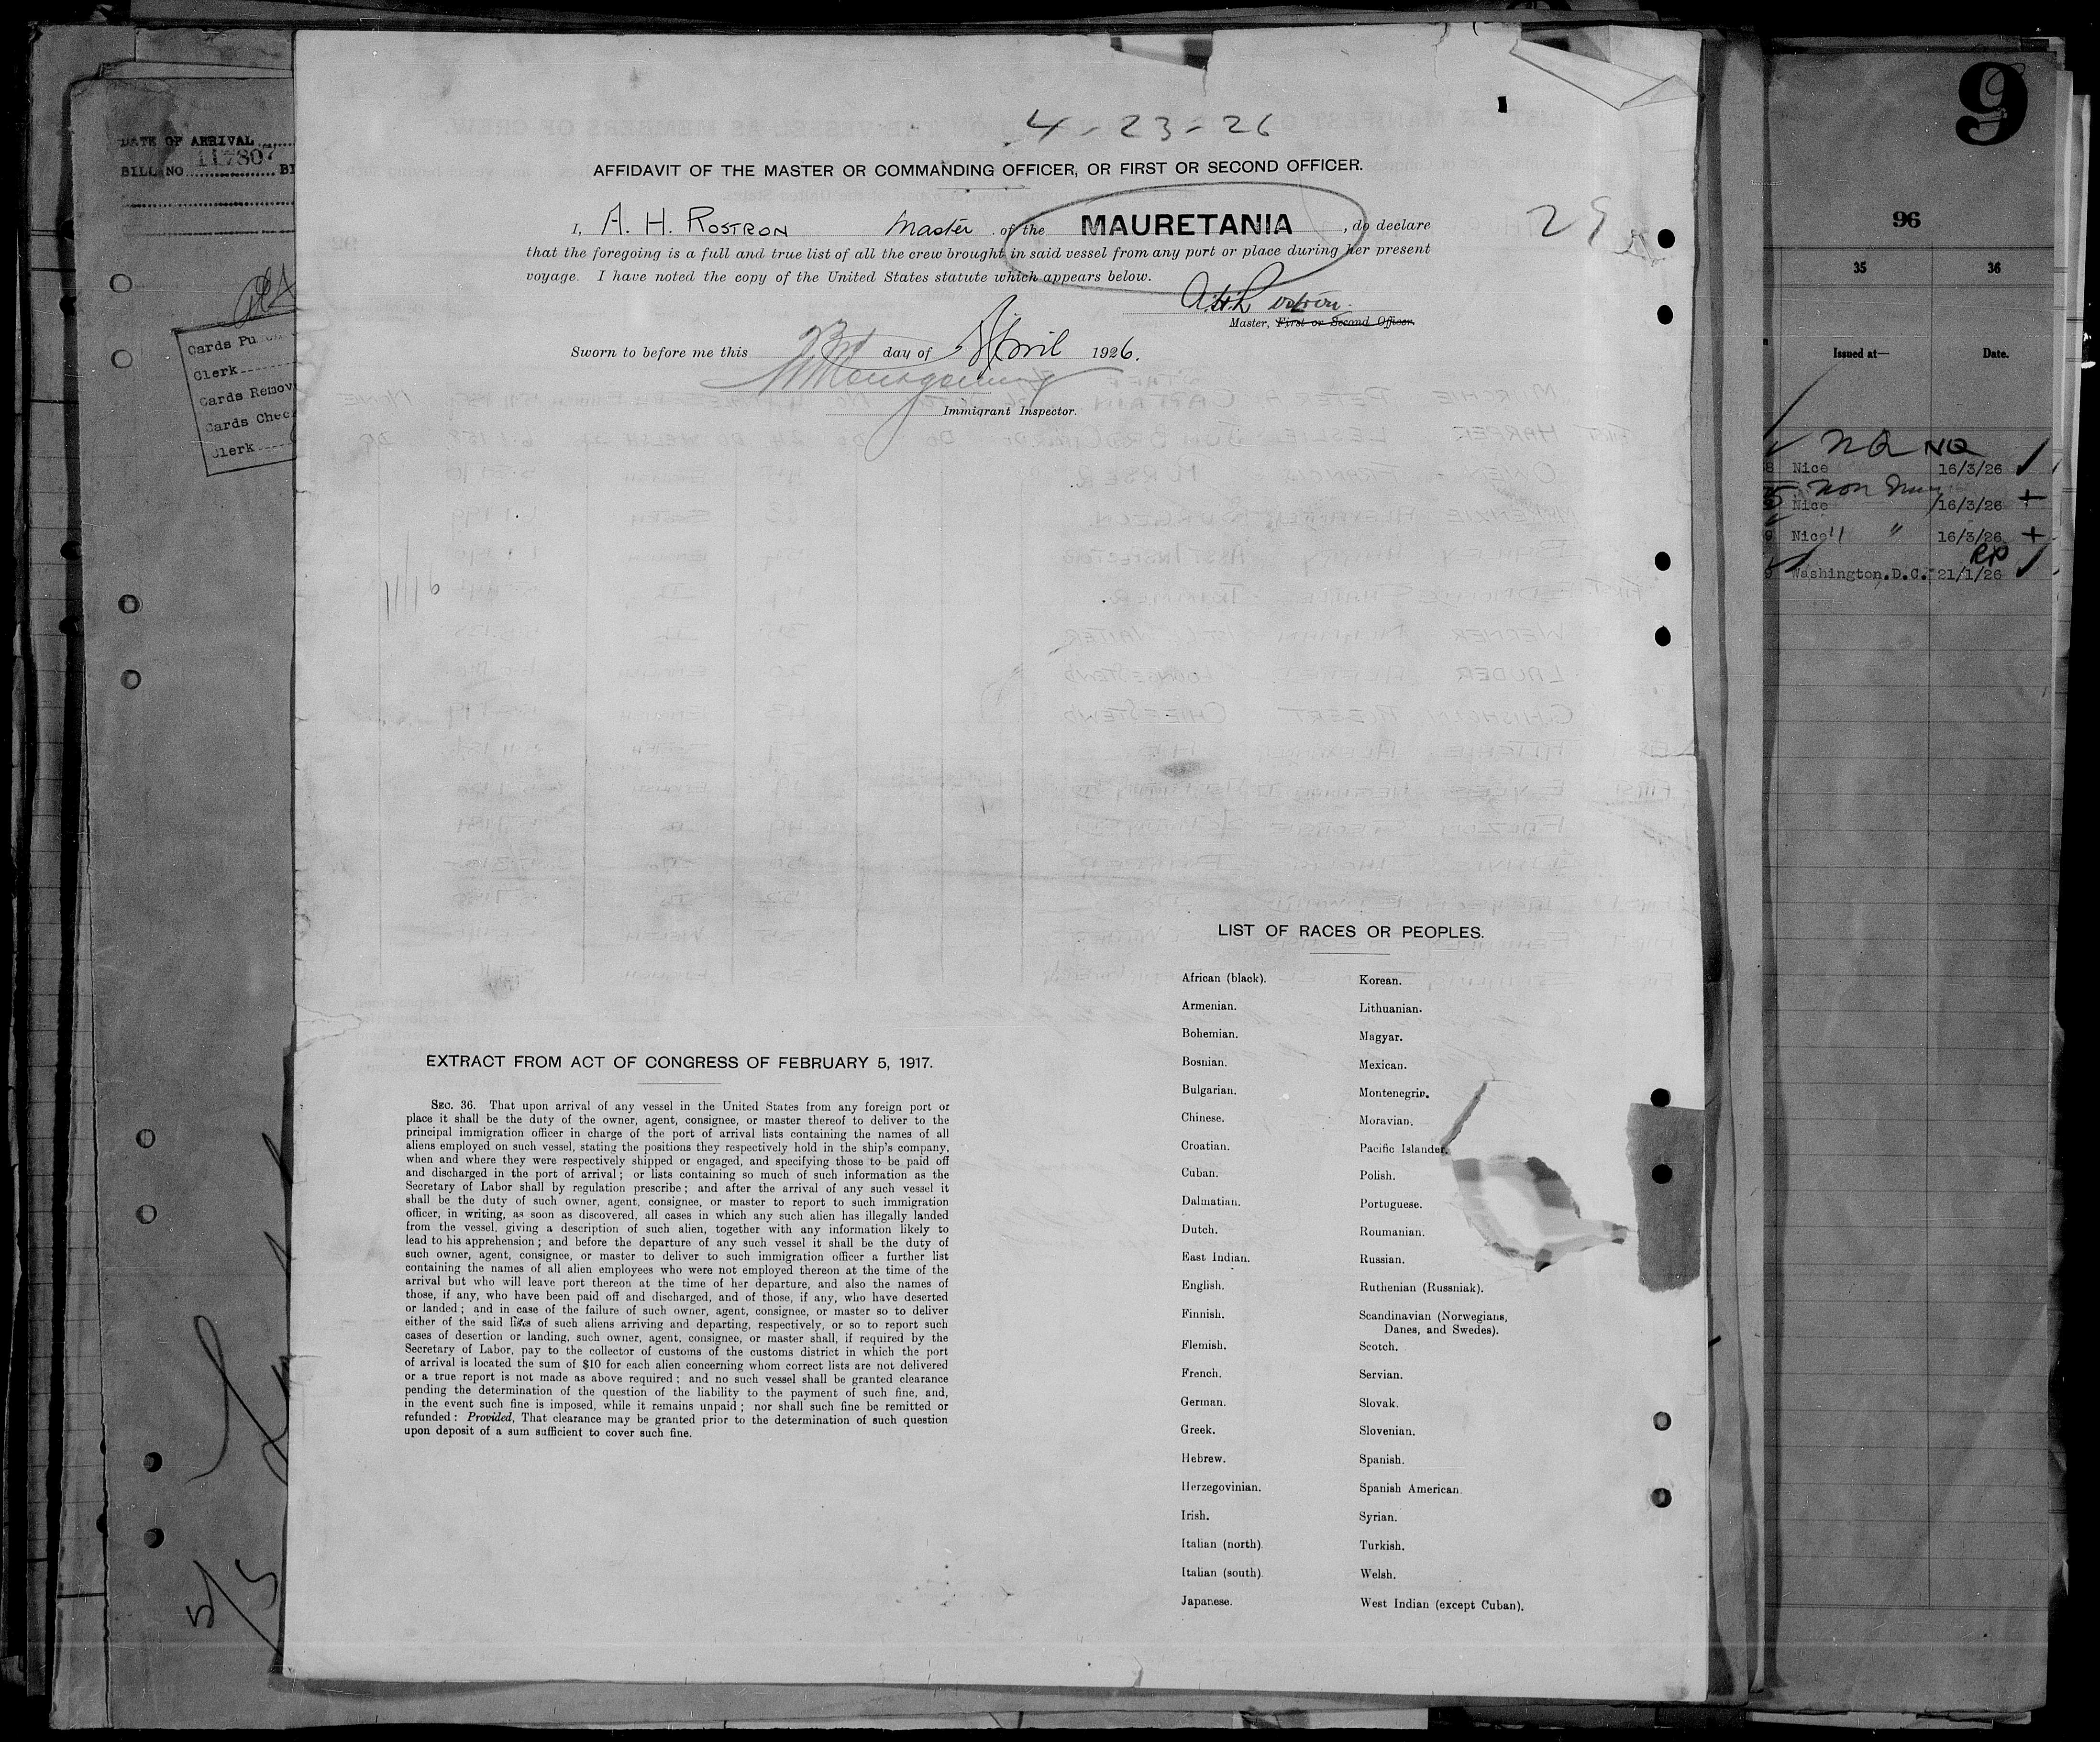 4-23-26
AFFIDAVIT OF THE MASTER OR COMMANDING OFFICER, OR FIRST OR SECOND OFFICER.
I, A. H. ROSTRON Master of the MAURETANIA, do declare
that the foregoing is a full and true list of all the crew brought in said vessel from any port or place during her present
voyage. I have noted the copy of the United States statute which appears below.
A. H. Rostron
Master, First or Second Officer.
Sworn to before me this 23rd day of April 1926.
Montgomery
Immigrant Inspector.
29
LIST OF RACES OR PEOPLES.
African (black). Korean.
Armenian. Lithuanian.
Bohemian. Magyar.
Bosnian. Mexican.
Bulgarian. Montenegrin.
Chinese. Moravian.
Croatian. Pacific Islander.
Cuban. Polish.
Dalmatian. Portuguese.
Dutch. Roumanian.
East Indian. Russian.
English. Ruthenian (Russniak).
Finnish. Scandinavian (Norwegians,
Danes, and Swedes).
Flemish. Scotch.
French. Servian.
German. Slovak.
Greek. Slovenian.
Hebrew. Spanish.
Herzegovinian. Spanish American.
Irish. Syrian.
Italian (north). Turkish.
Italian (south). Welsh.
Japanese. West Indian (except Cuban).
EXTRACT FROM ACT OF CONGRESS OF FEBRUARY 5, 1917.
SEC. 36. That upon arrival of any vessel in the United States from any foreign port or
place it shall be the duty of the owner, agent, consignee, or master thereof to deliver to the
principal immigration officer in charge of the port of arrival lists containing the names of all
aliens employed on such vessel, stating the positions they respectively hold in the ship's company,
when and where they were respectively shipped or engaged, and specifying those to be paid off
and discharged in the port of arrival; or lists containing so much of such information as the
Secretary of Labor shall by regulation prescribe; and after the arrival of any such vessel it
shall be the duty of such owner, agent, consignee, or master to report to such immigration
officer, in writing, as soon as discovered, all cases in which any such alien has illegally landed
from the vessel, giving a description of such alien, together with any information likely to
lead to his apprehension; and before the departure of any such vessel it shall be the duty of
such owner, agent, consignee, or master to deliver to such immigration officer a further list
containing the names of all alien employees who were not employed thereon at the time of the
arrival but who will leave port thereon at the time of her departure, and also the names of
those, if any, who have been paid off and discharged, and of those, if any, who have deserted
or landed; and in case of the failure of such owner, agent, consignee, or master so to deliver
either of the said lists of such aliens arriving and departing, respectively, or so to report such
cases of desertion or landing, such owner, agent, consignee, or master shall, if required by the
Secretary of Labor, pay to the collector of customs of the customs district in which the port
of arrival is located the sum of $10 for each alien concerning whom correct lists are not delivered
or a true report is not made as above required; and no such vessel shall be granted clearance
pending the determination of the question of the liability to the payment of such fine, and,
in the event such fine is imposed, while it remains unpaid; nor shall such fine be remitted or
refunded: Provided, That clearance may be granted prior to the determination of such question
upon deposit of a sum sufficient to cover such fine.
DATE OF ARRIVAL
117807
BILL NO
Cards Pu
Clerk
Cards Remov
Cards Chec
Clerk
5/5
9
96
35 36
Issued at— Date.
NQ NQ
Nice 16/3/26
Non
Nice 16/3/26 +
Nice " " 16/3/26 +
RP
Washington.D.C. 21/1/26